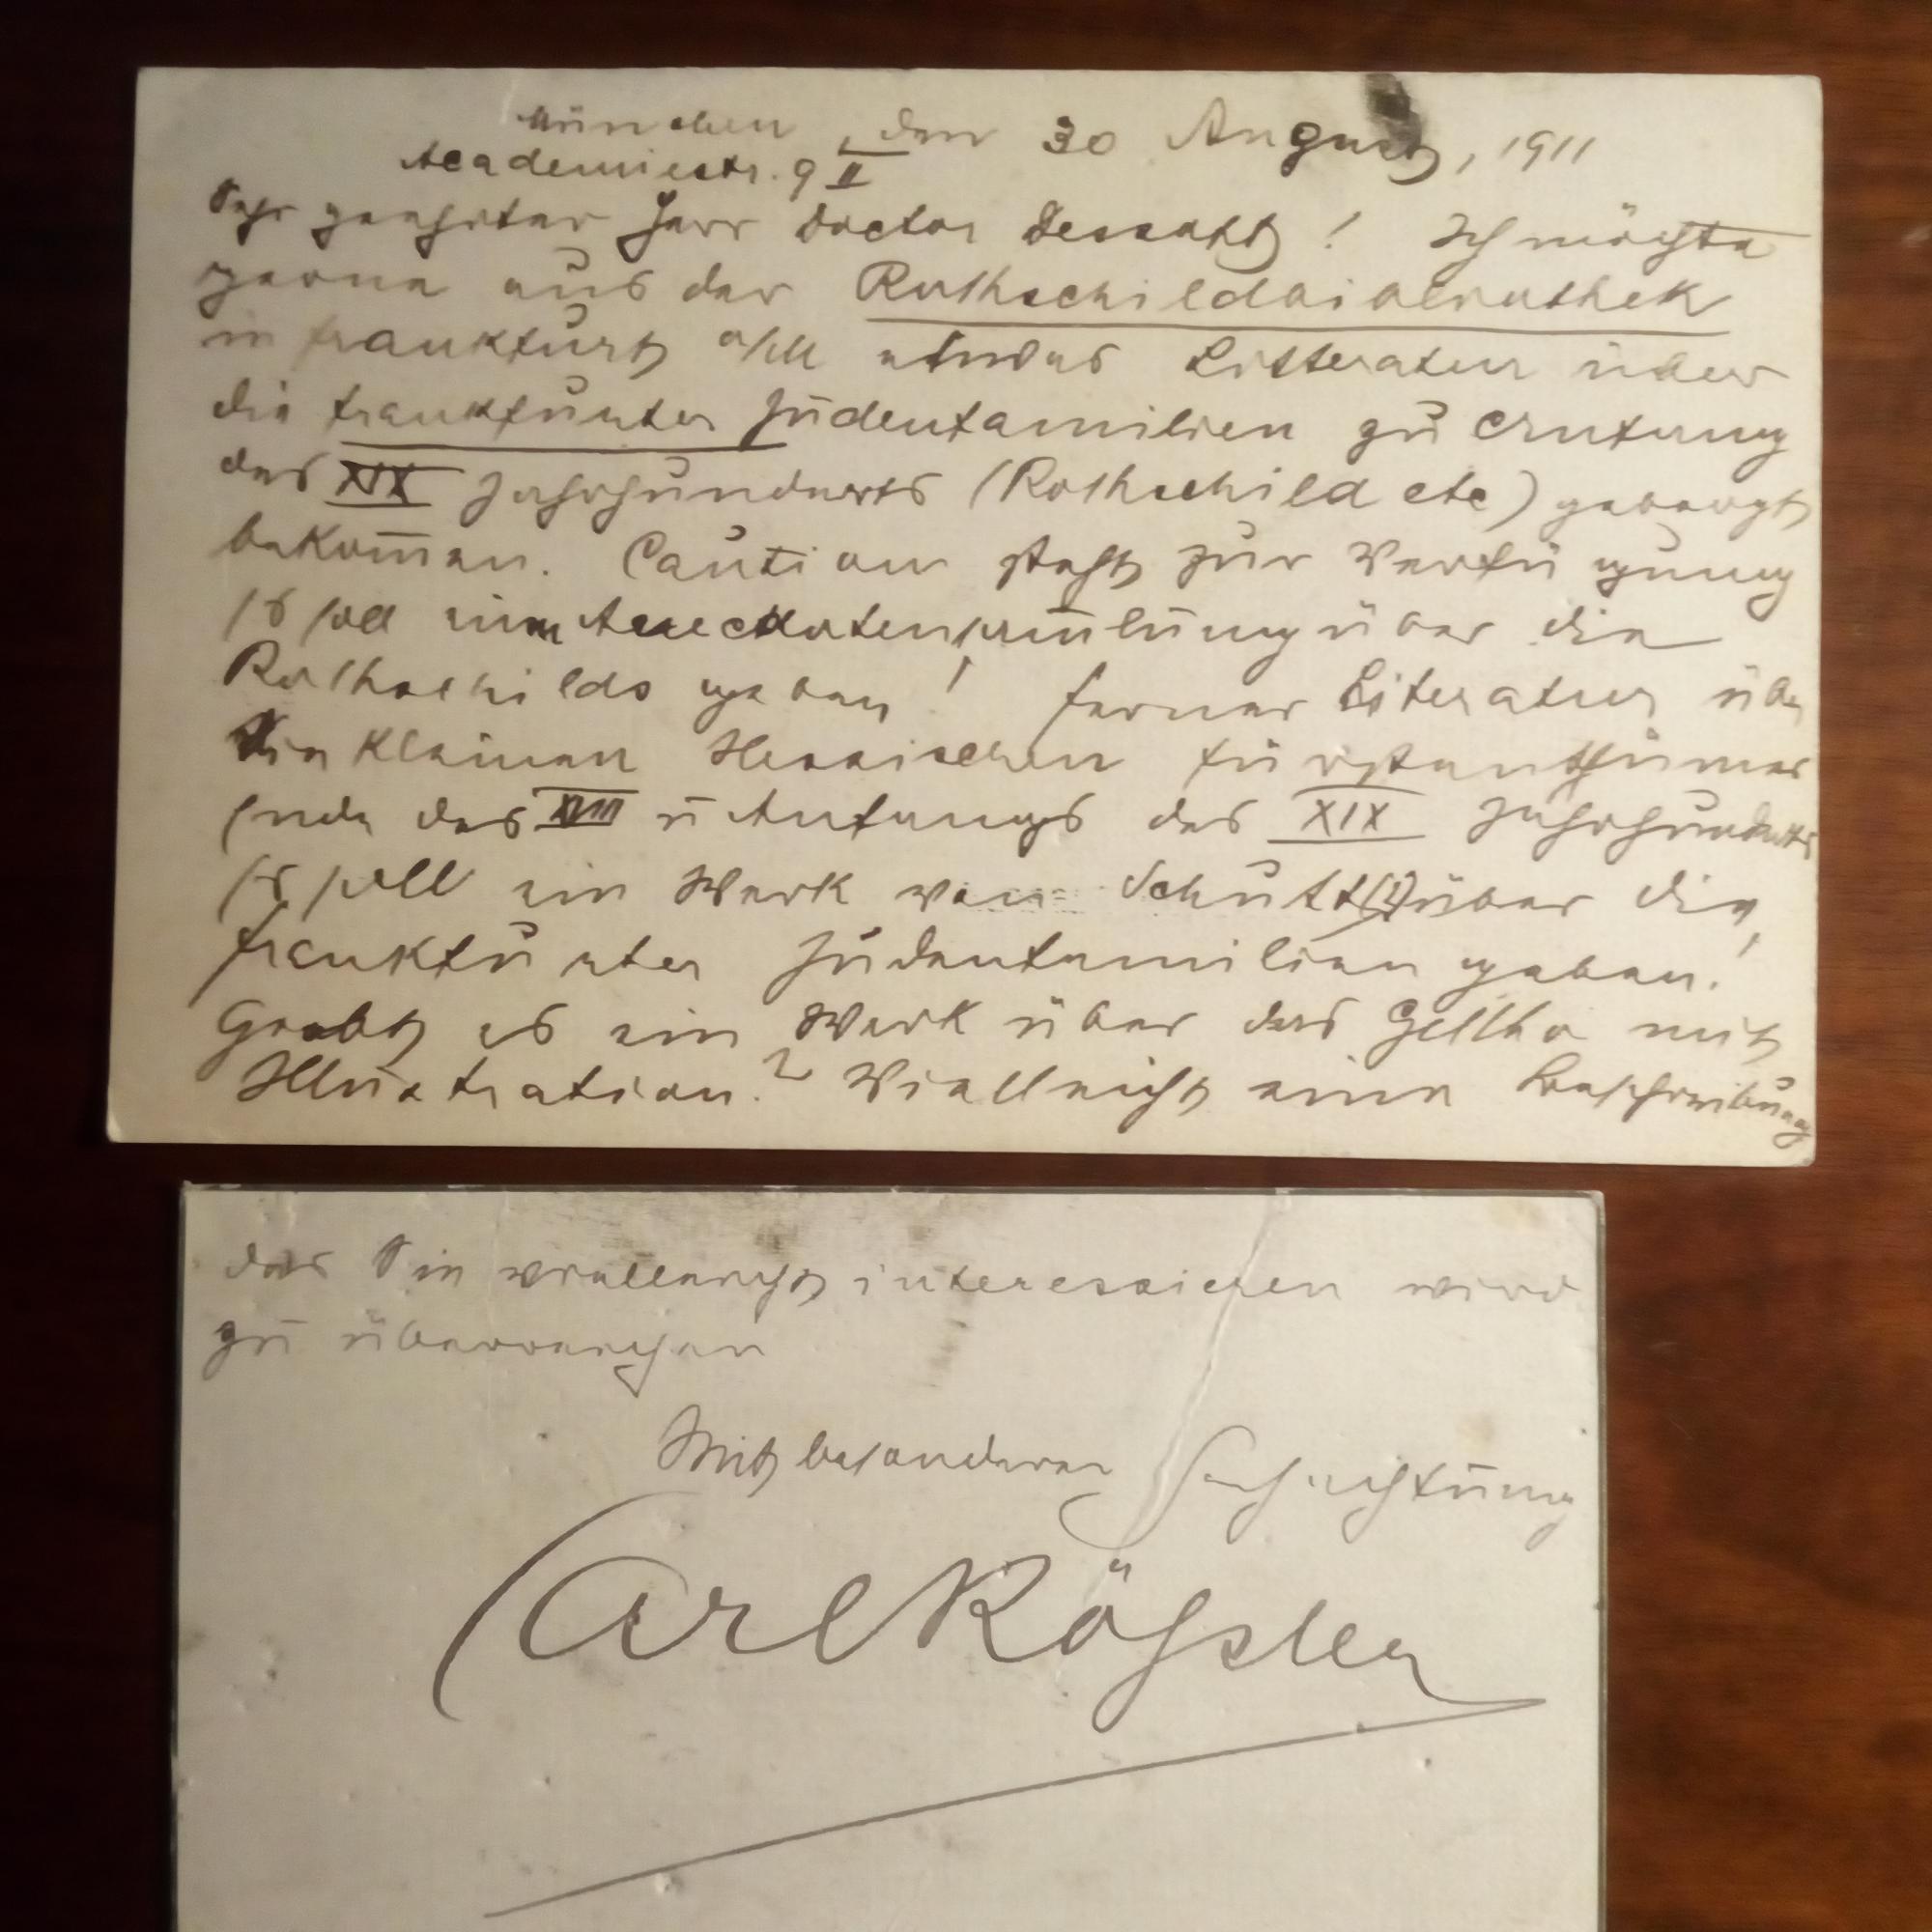 München, den 30 August, 1911
Academiestr. 9 II
Sehr geehrter Herr Doctor! Ich möchte
gerne aus der Rothschildbibliothek
in Frankfurt a/M etwas Litteratur über
die Frankfurter Judenfamilien zu Anfang
des XIX Jahrhunderts (Rothschild etc) geborgt
bekom̄en. Caution steht zur Verfügung
Es soll eine Anecdotensam̄lung über die
Rothschilds geben! Ferner Literatur über
die kleinen Hessischen Fürstenthümer
Ende des XVIII u Anfangs des XIX Jahrhunderts
Es soll ein Werk von Schutt(?) über die
Frankfurter Judenfamilien geben!
Giebt es ein Werk über das Ghetto mit
Illustration? Vielleicht eine Beschreibung
das Sie vielleicht interessieren wird
zu überreichen
Mit besonderer Hochachtung
Carl Rössler